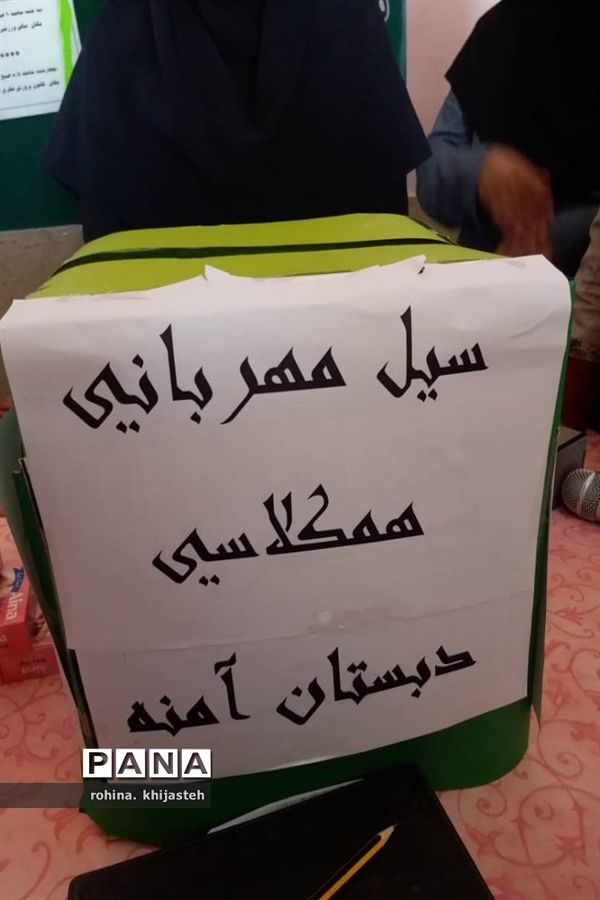 سیل مهربانیی
همکلاسیی
دبستان آمنه
PANA
rohina. khijasteh
Aina